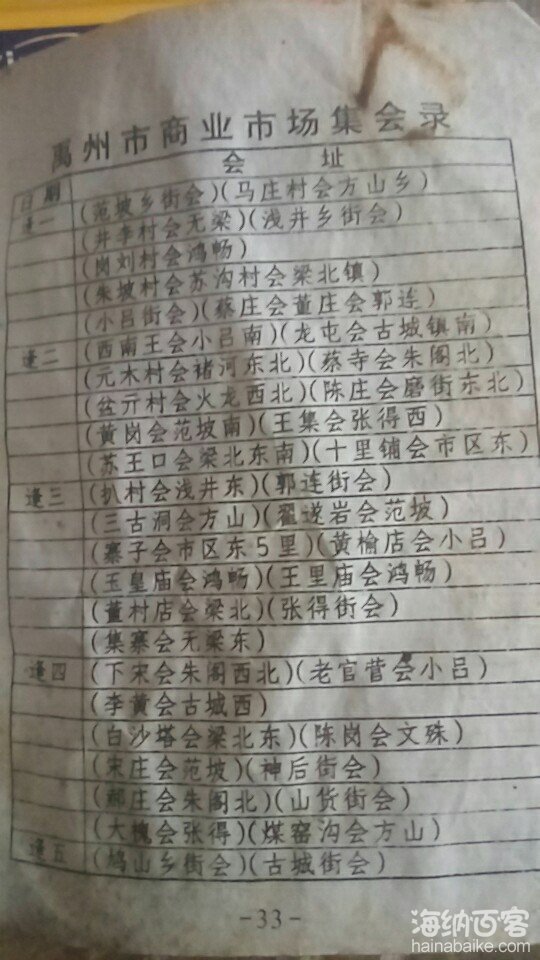 禹州市商业市场集会录
日期 会址
逢一 (范坡乡街会)(马庄村会方山乡)
(井李村会无梁)(浅井乡街会)
(岗刘村会鸿畅)
(朱坡村会苏沟村会梁北镇)
(小吕街会)(蔡庄会董庄会郭连)
逢二 (西南王会小吕南)(龙屯会古城镇南)
(元木村会褚河东北)(蔡寺会朱阁北)
(盆亓村会火龙西北)(陈庄会磨街东北)
(黄岗会范坡南)(王集会张得西)
(苏王口会梁北东南)(十里铺会市区东)
逢三 (扒村会浅井东)(郭连街会)
(三古洞会方山)(翟遂岩会范坡)
(寨子会市区东5里)(黄榆店会小吕)
(玉皇庙会鸿畅)(王里庙会鸿畅)
(董村店会梁北)(张得街会)
(集寨会无梁东)
逢四 (下宋会朱阁西北)(老官营会小吕)
(李黄会古城西)
(白沙塔会梁北东)(陈岗会文殊)
(宋庄会范坡)(神后街会)
(郝庄会朱阁北)(山货街会)
(大槐会张得)(煤窑沟会方山)
逢五 (鸠山乡街会)(古城街会)
-33-
海纳百客
hainabaike.com